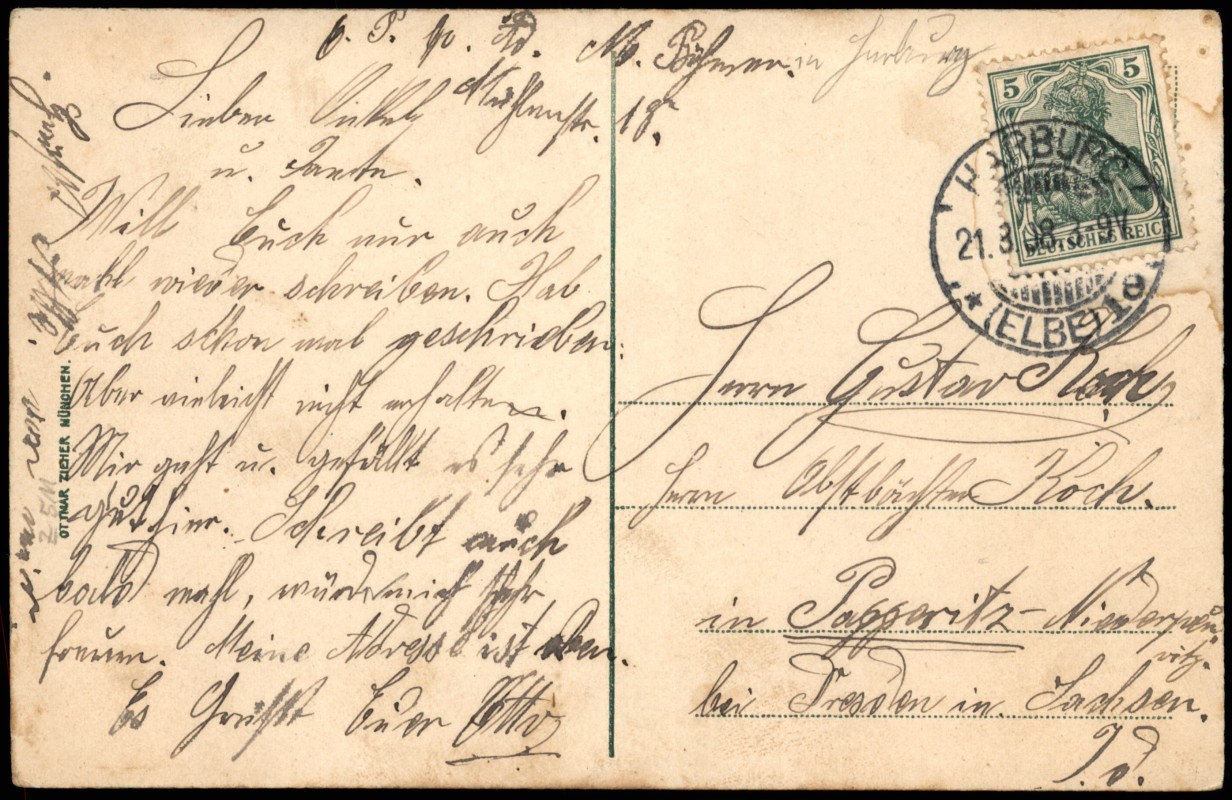 M. Böhmer. in Harburg
Mühlenstr. 18.
Lieber Onkel
u. Tante.
Will Euch nur auch
mahl wieder schreiben. Hab
Euch schon mal geschrieben.
Aber vieleicht nicht erhalten.
Mir geht u. gefällt es sehr
gut hier. Schreibt auch
bald mahl, würde mich sehr
freuen. Meine Adresse ist oben.
Es Grüßt Euer Otto
OTTMAR ZIEHER MÜNCHEN.
5 5
DEUTSCHES REICH
HARBURG
21.8.08. 8-9V.
* (ELBE) 1c
Herrn Gustav Koch
Herrn Obstpächter Koch.
in Papperitz-Niederpoy-
ritz.
bei Dresden in Sachsen.